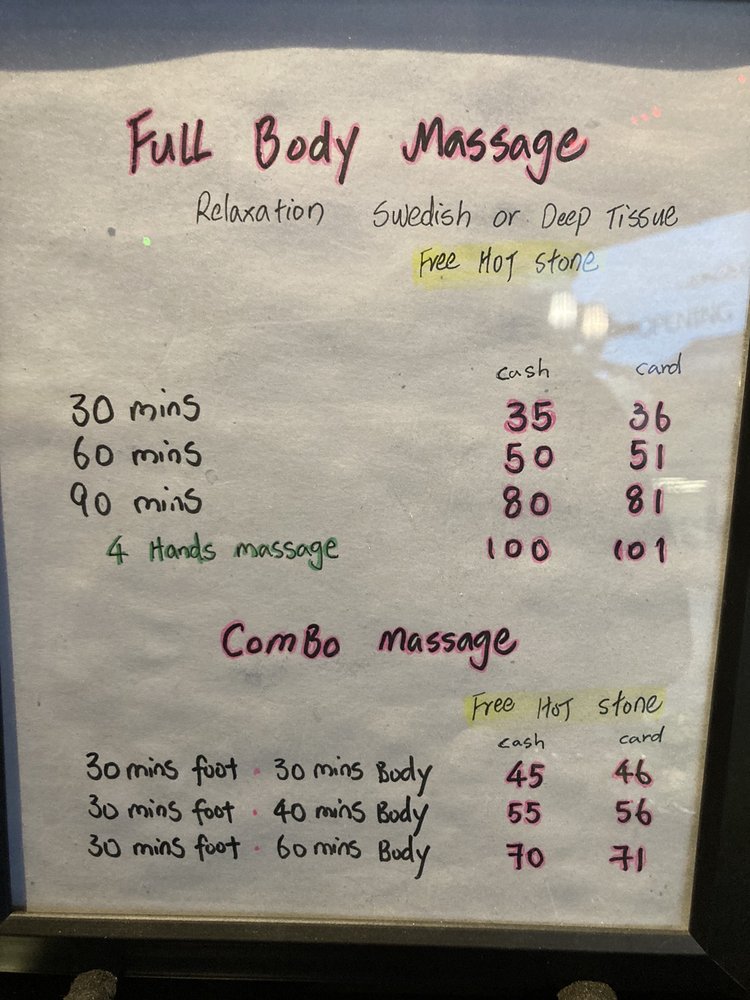 Full Body Massage
Relaxation Swedish or Deep Tissue
Free Hot stone
cash card
30 mins 35 36
60 mins 50 51
90 mins 80 81
4 Hands massage 100 101
ComBo massage
Free Hot stone
cash card
30 mins foot . 30 mins Body 45 46
30 mins foot . 40 mins Body 55 56
30 mins foot . 60 mins Body 70 71
OPENING